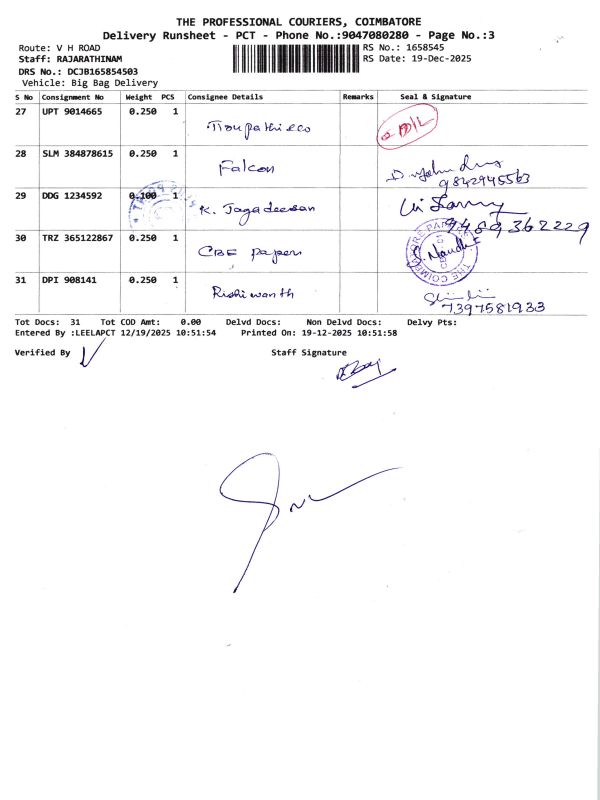 THE PROFESSIONAL COURIERS, COIMBATORE
Delivery Runsheet - PCT - Phone No.:9047080280 - Page No.:3
Route: V H ROAD
RS No.: 1658545
Staff: RAJARATHINAM
RS Date: 19-Dec-2025
DRS No.: DCJB165854503
Vehicle: Big Bag Delivery
S No Consignment No Weight PCS Consignee Details Remarks Seal & Signature
27 UPT 9014665 0.250 1
28 SLM 384878615 0.250 1 Falcon
9842945563
29 DDG 1234592 0.100 1 K. Jagadeesan
9489362229
30 TRZ 365122867 0.250 1 CBE papers
THE COIMBATORE
31 DPI 908141 0.250 1 Rishiwanth
7397581933
Tot Docs: 31 Tot COD Amt: 0.00 Delvd Docs: Non Delvd Docs: Delvy Pts:
Entered By :LEELAPCT 12/19/2025 10:51:54 Printed On: 19-12-2025 10:51:58
Verified By
Staff Signature